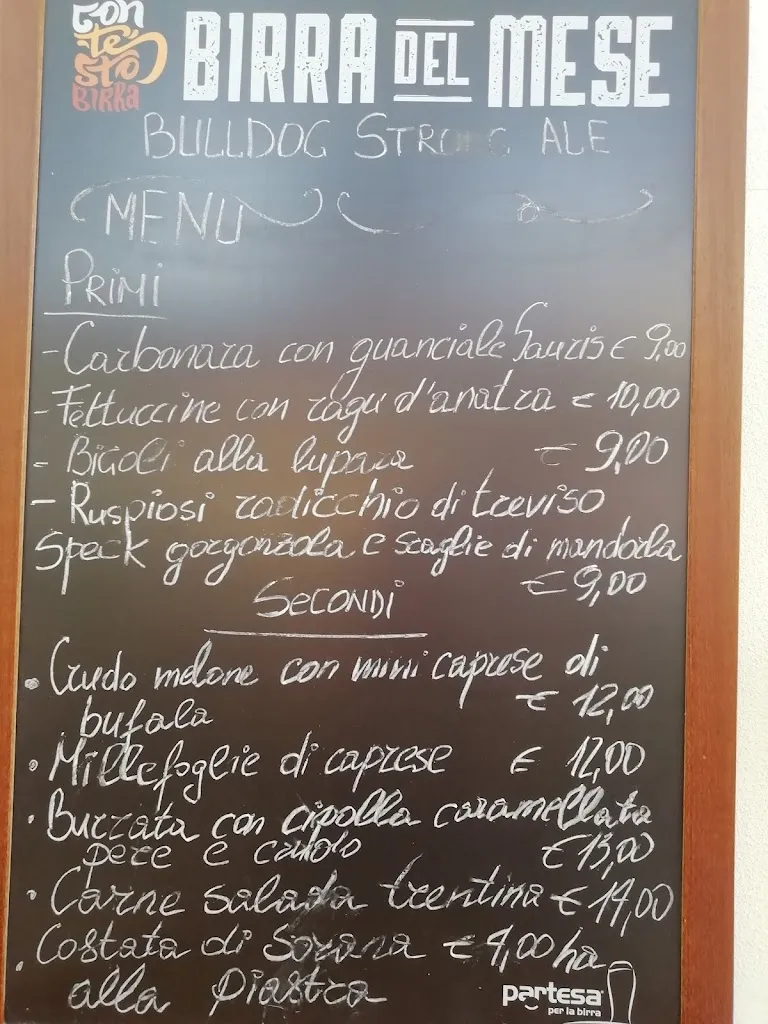 Contesto
BIRRA
BIRRA DEL MESE
BULLDOG STRONG ALE
MENU
PRIMI
- Carbonara con guanciale Sauris € 9,00
- Fettuccine con ragù d'anatra € 10,00
- Bigoli alla lupara € 9,00
- Ruspiosi radicchio di treviso
Speck gorgonzola e scaglie di mandorla
€ 9,00
SECONDI
• Crudo melone con mini caprese di
bufala € 12,00
• Millefoglie di caprese € 12,00
• Burrata con cipolla caramellata
pere e crudo € 13,00
• Carne salada trentina € 14,00
• Costata di Sorana € 4,00 ha
alla piastra
partesa
per la birra